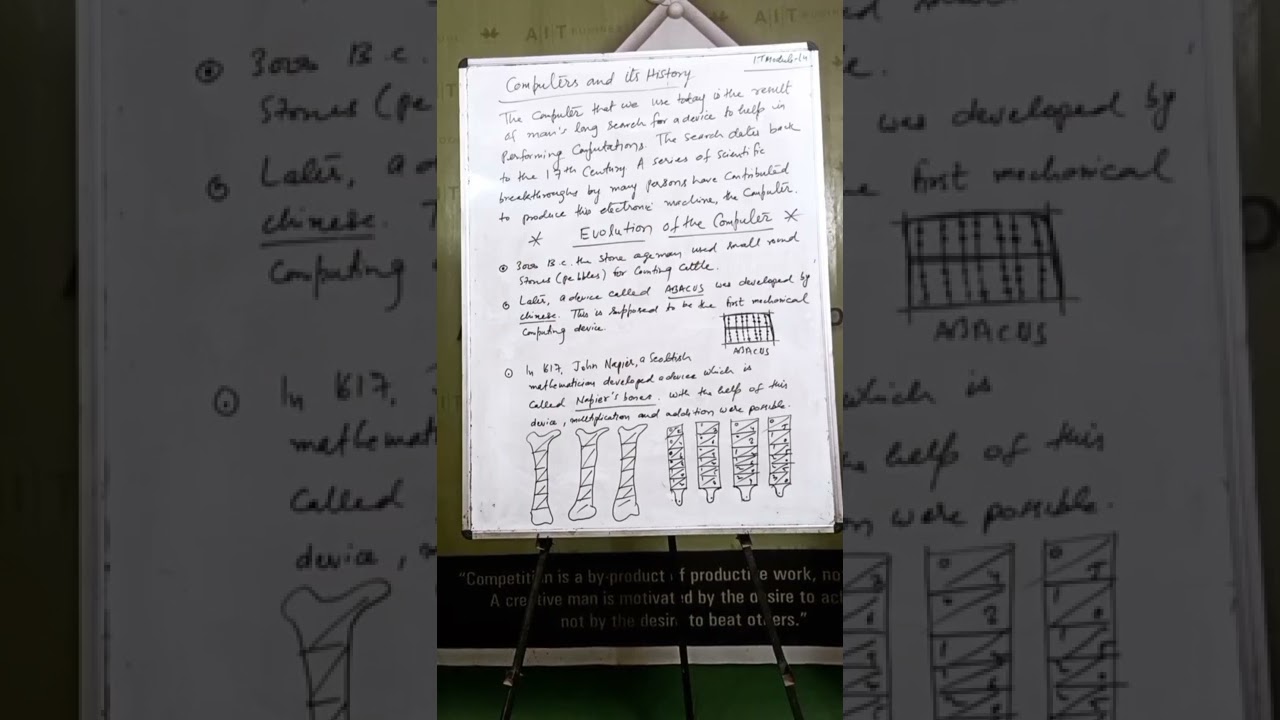 AIT BUSINES
I.T Module-14
Computers and its History
The Computer that we use today is the result
of man's long search for a device to help in
Performing Computations. The search dates back
to the 17th Century. A series of scientific
breakthroughs by many persons have contributed
to produce this electronic machine, the Computer.
* Evolution of the Computer *
3000 B.C. the stone age man used small round
Stones (pebbles) for Counting Cattle.
Later, a device called ABACUS was developed by
chinese. This is supposed to be the first mechanical
Computing device.
ABACUS
In 1617, John Napier, a Scottish
mathematician developed a device which is
Called Napier's bones. With the help of this
device, multiplication and addition were possible.
"Competition is a by-product of productive work, no
A creative man is motivated by the desire to ac
not by the desire to beat others."